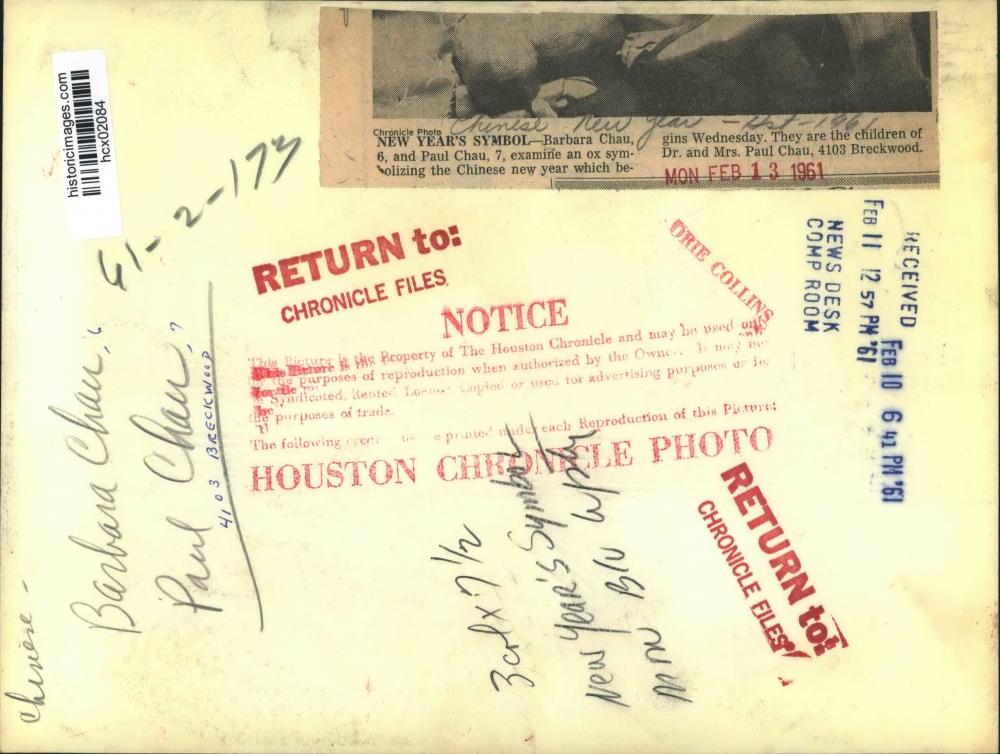 historicimages.com
hcx02084
Chronicle Photo
Chinese New Year - 1961
NEW YEAR'S SYMBOL—Barbara Chau,
6, and Paul Chau, 7, examine an ox sym-
bolizing the Chinese new year which be-
gins Wednesday. They are the children of
Dr. and Mrs. Paul Chau, 4103 Breckwood.
MON FEB 13 1961
61-2-173
RETURN to:
CHRONICLE FILES
ORIE COLLINS
RECEIVED
FEB 11 12 57 PM '61
NEWS DESK
COMP ROOM
FEB 10 6 41 PM '61
NOTICE
This Picture is the Property of The Houston Chronicle and may be used only
for the purposes of reproduction when authorized by the Owner. It may not
be Syndicated, Rented, Loaned, Copied or used for advertising purposes or for
the purposes of trade.
The following credit must be printed under each Reproduction of this Picture:
HOUSTON CHRONICLE PHOTO
Barbara Chau, 6
Paul Chau, 7
4103 BRECKWOOD
Chinese -
3 col x 7 1/2
New Year's Symbol
RETURN to:
CHRONICLE FILES